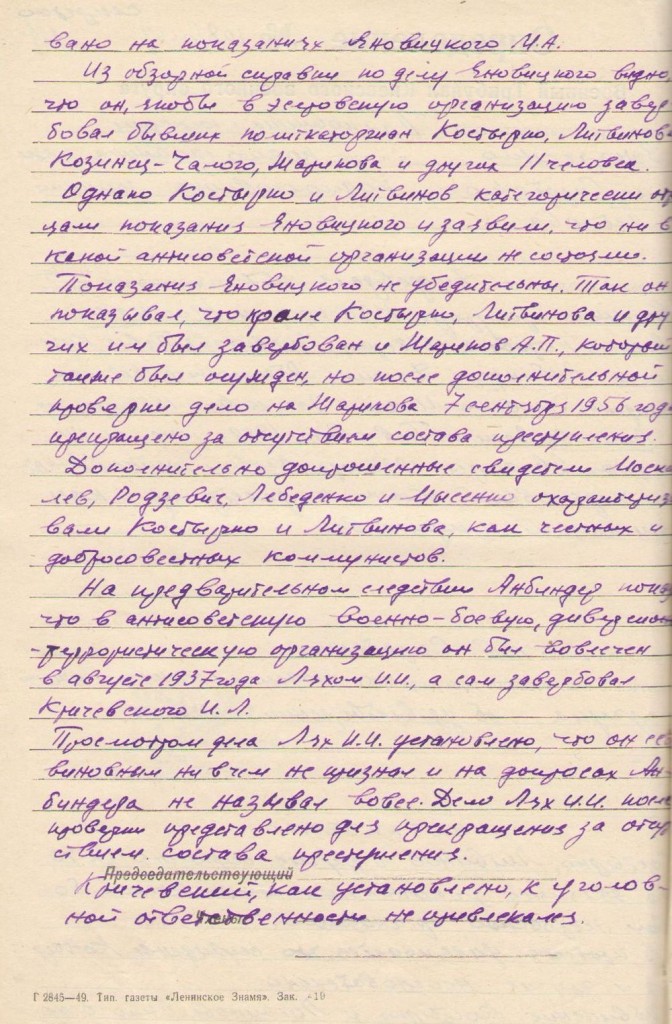 вано на показаниях Яновицкого М.А.
Из обзорной справки по делу Яновицкого видно
что он, якобы в эсеровскую организацию завер
бовал бывших политкаторжан Костырко, Литвинов
Козинец-Чалого, Маринова и других 11 человек.
Однако Костырко и Литвинов категорически от
цали показания Яновицкого и заявили, что ни в
какой антисоветской организации не состояли.
Показания Яновицкого не убедительны. Так он
показывал, что кроме Костырко, Литвинова и дру
гих им был завербован и А.П., который
также был осужден, но после дополнительной
проверки дело на 7 сентября 1956 год
прекращено за отсутствием состава преступления.
Дополнительно допрошенные свидетели Моска
лев, Родзевич, Лебеденко и Мысенко охарактериз
вали Костырко и Литвинова, как честных и
добросовестных коммунистов.
На предварительном следствии Анбиндер пока
что в антисоветскую военно-боевую, диверсион
-террористическую организацию он был вовлечен
в августе 1937 года Ляхом И.И., а сам завербовал
Кричевского И.Л.
Просмотром дела Лях И.И. установлено, что он се
виновным ни в чем не признал и на допросах Ан
биндера не называл вовсе. Дело Лях И.И. после
проверки представлено для прекращения за отсут
ствием состава преступления.
Председательствующий
Кричевский, как установлено, к уголов-
ной ответственности не привлекался.
Г 2845—49. Тип. газеты «Ленинское Знамя». Зак. -10